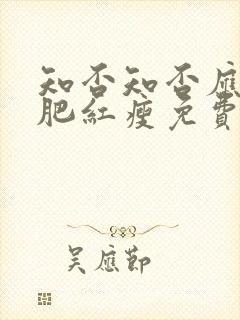 知否知否應
肥紅瘦免費
吳應節